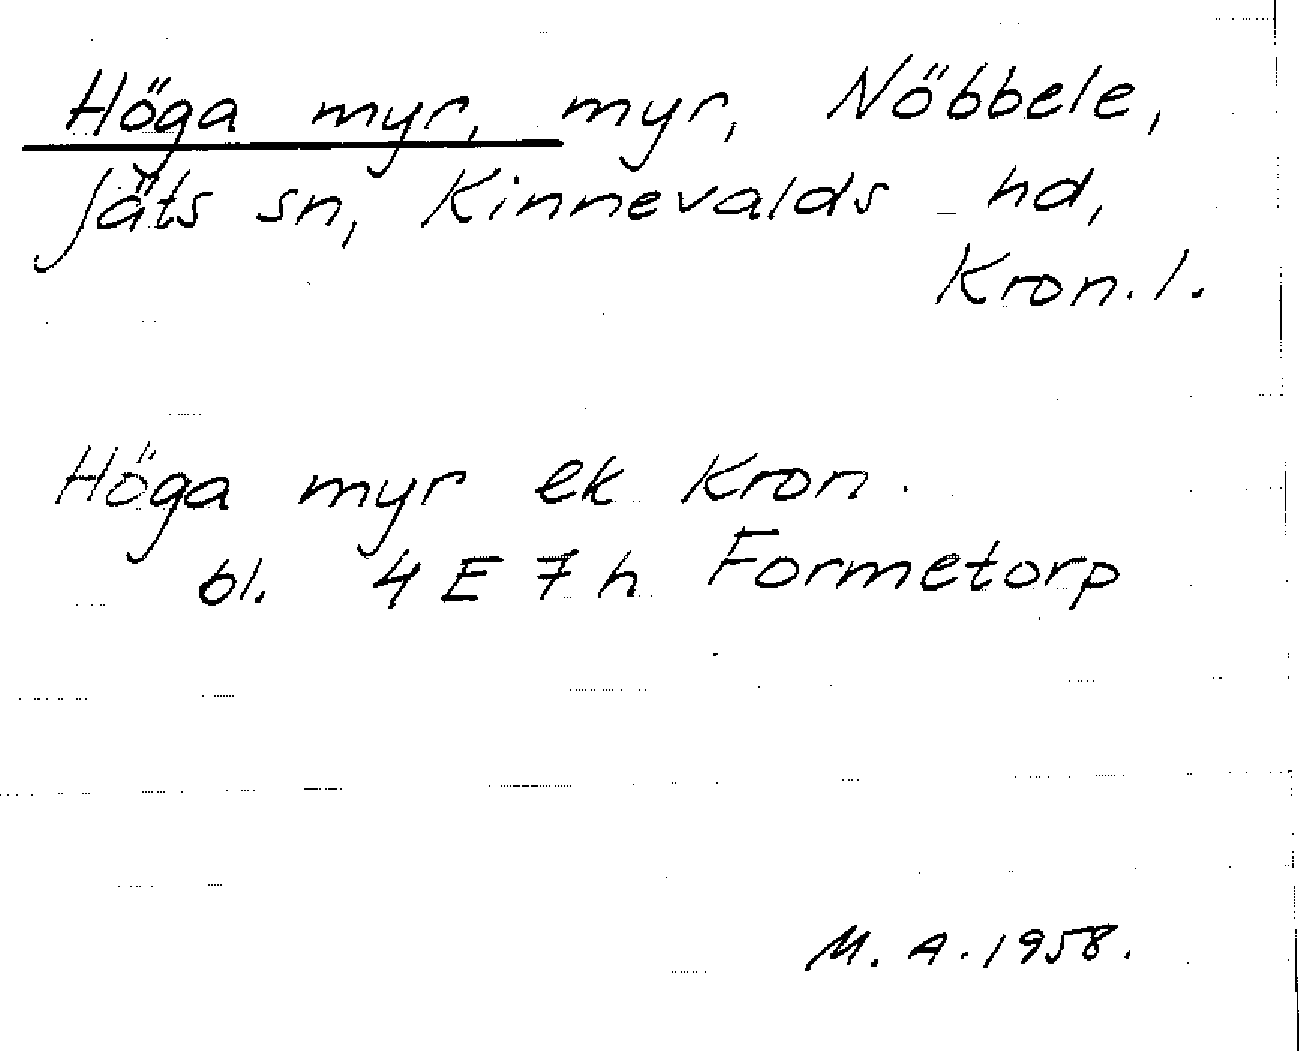 Höga myr, myr, Nöbbele,
Jäts sn, Kinnevalds hd,
Kron. l.
Höga myr ek Kron.
bl. 4 E 7 h Formetorp
M. A. 1958.